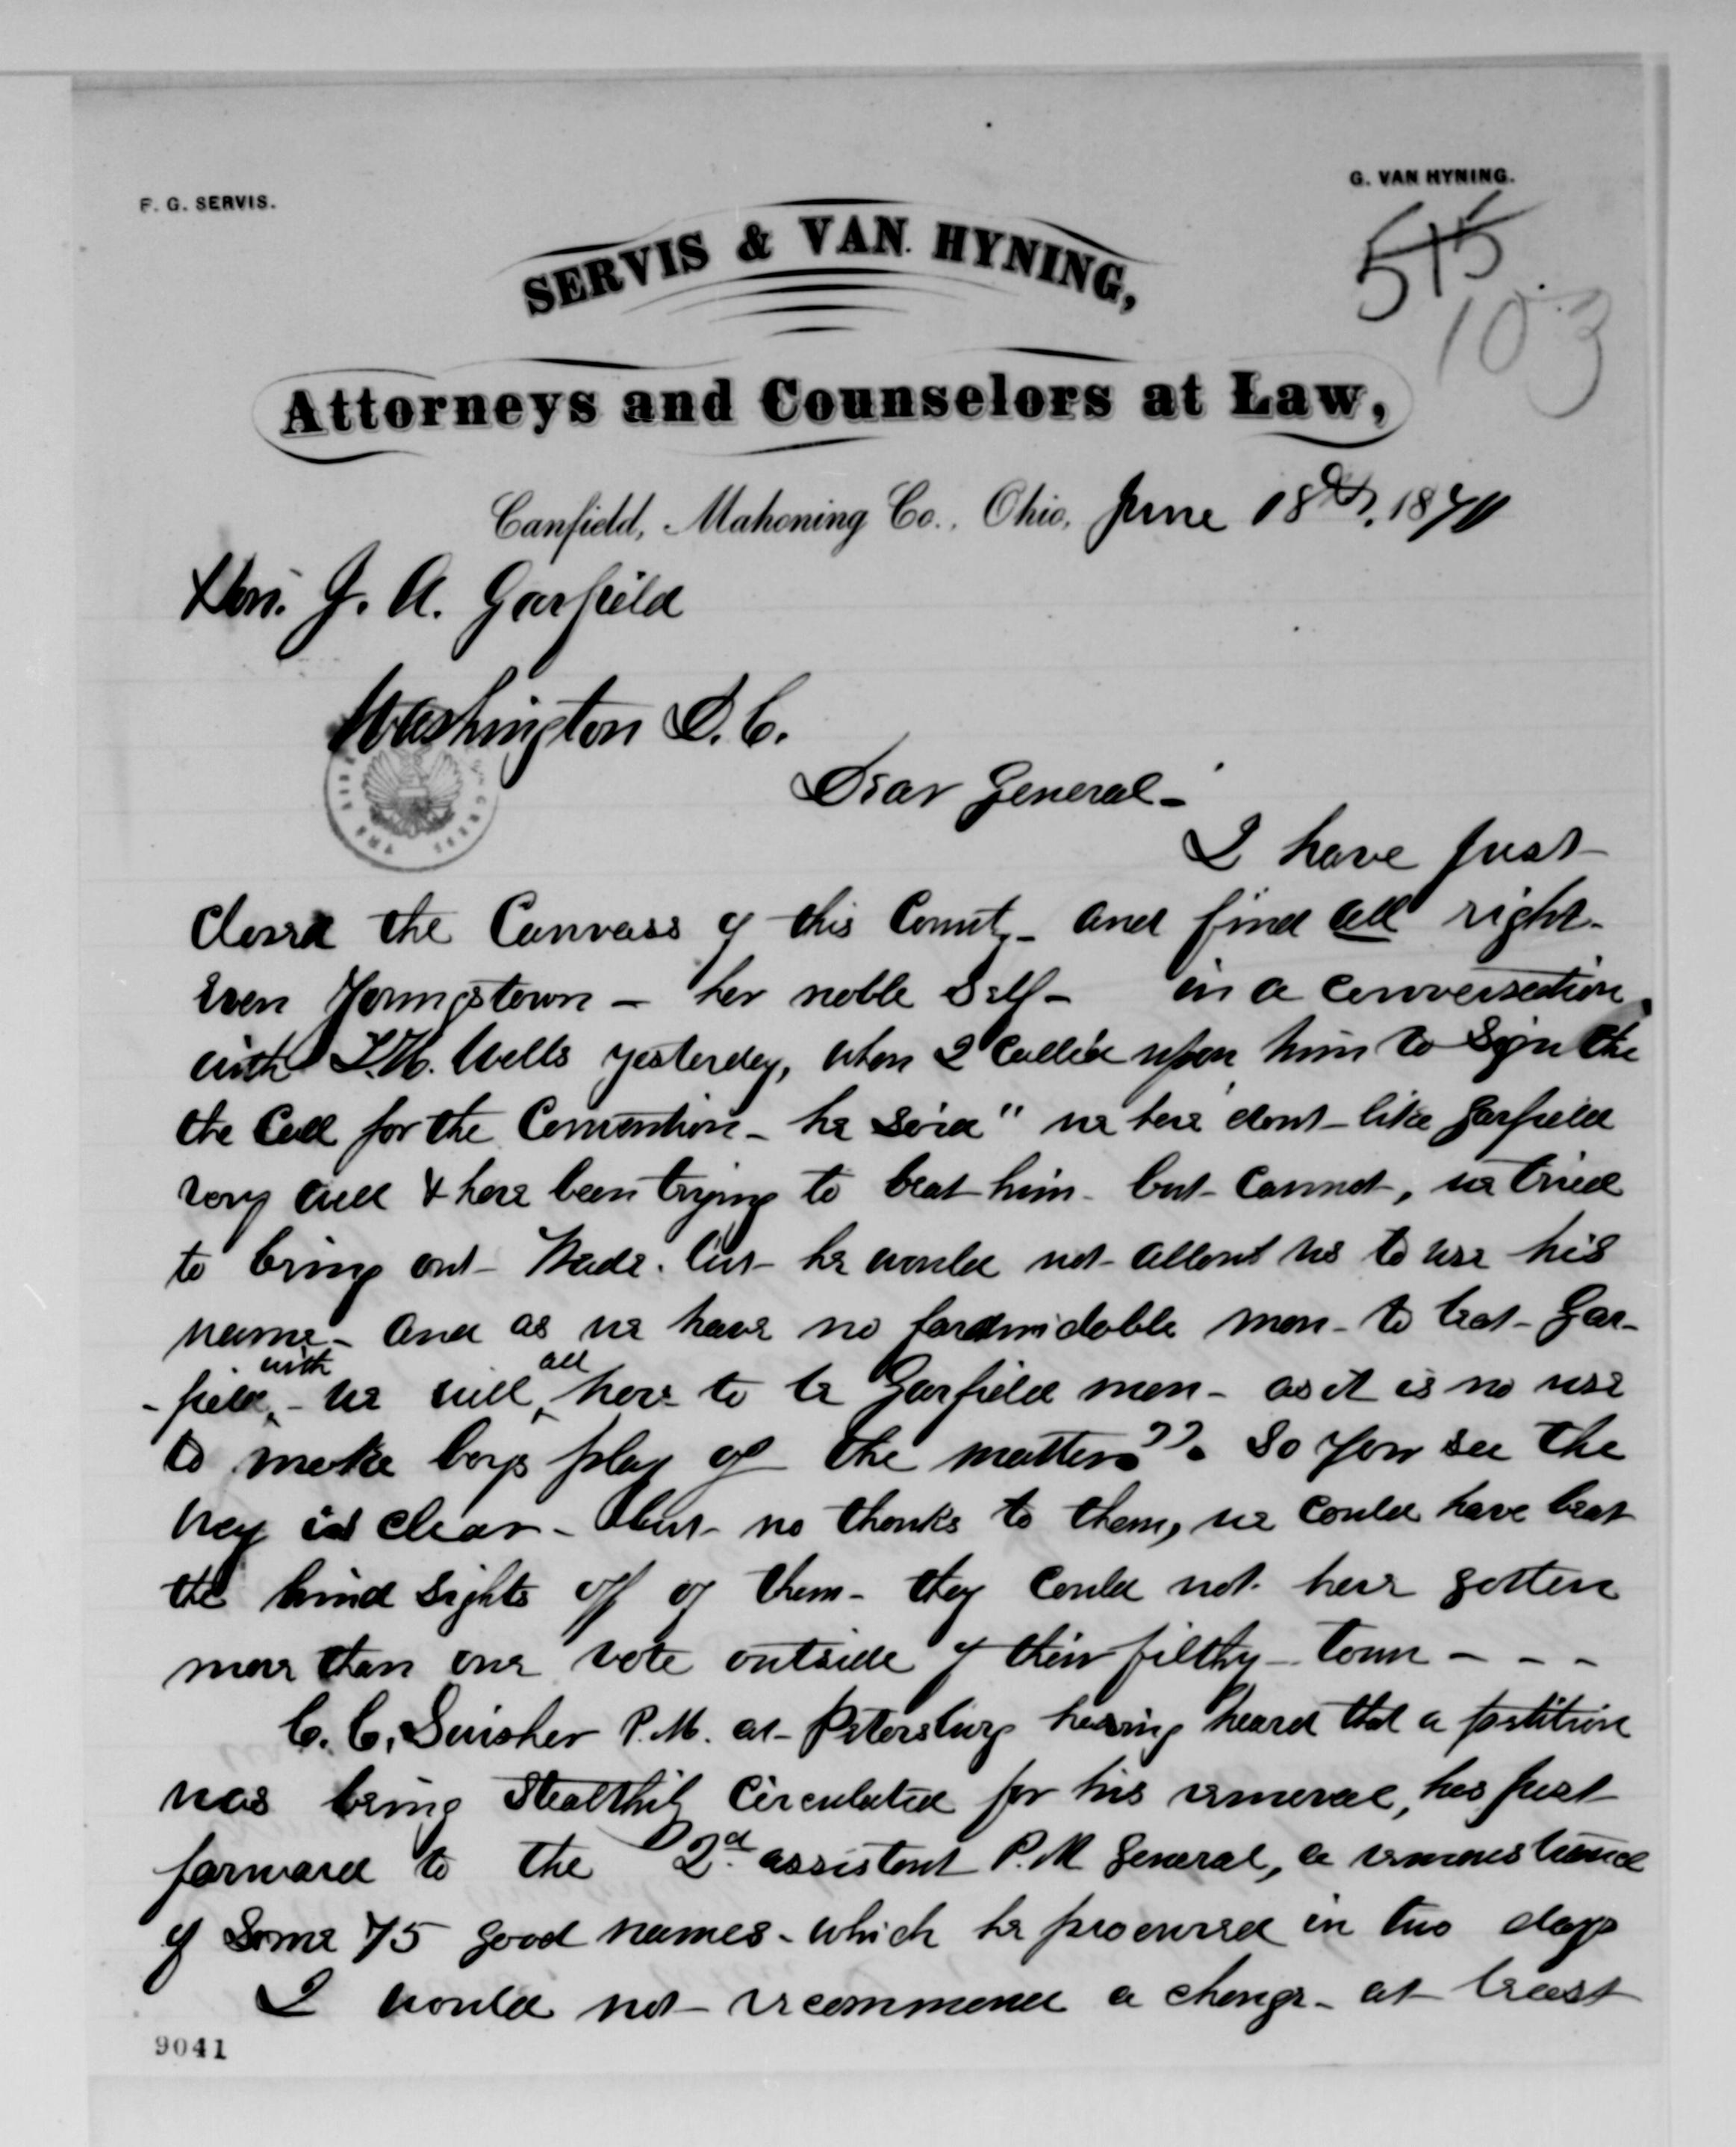 F. G. SERVIS.
G. VAN HYNING.
515
103
SERVIS & VAN HYNING,
Attorneys and Counselors at Law,
Canfield, Mahoning Co., Ohio, June 18th, 1870
Hon. J. A. Garfield
Washington D.C.
Dear General -
I have just
closed the Canvass of this County - and find all right -
even Youngstown - her noble Self - in a conversation
with T.H. Wells yesterday, when I called upon him to sign the
the Call for the Convention - he said " we here dont like Garfield
very well & have been trying to beat him - but cannot, we tried
to bring out Wade. but he would not allow us to use his
name - and as we have no fordmidable man - to beat Gar-
-field, with - we will, all have to be Garfield men - as it is no use
to make boys play of the matter". So you see the
way is clear - but no thanks to them, we could have beat
the hind sights off of them - they could not have gotten
more than one vote outside of their filthy town - - -
C. C. Swisher P.M. at Petersburg having heard that a petition
was being stealthily circulated for his removal, has just
forward to the 2d. assistant P.M General, a remonstrance
of some 75 good names - which he procured in two days
I would not recommend a change - at least
9041